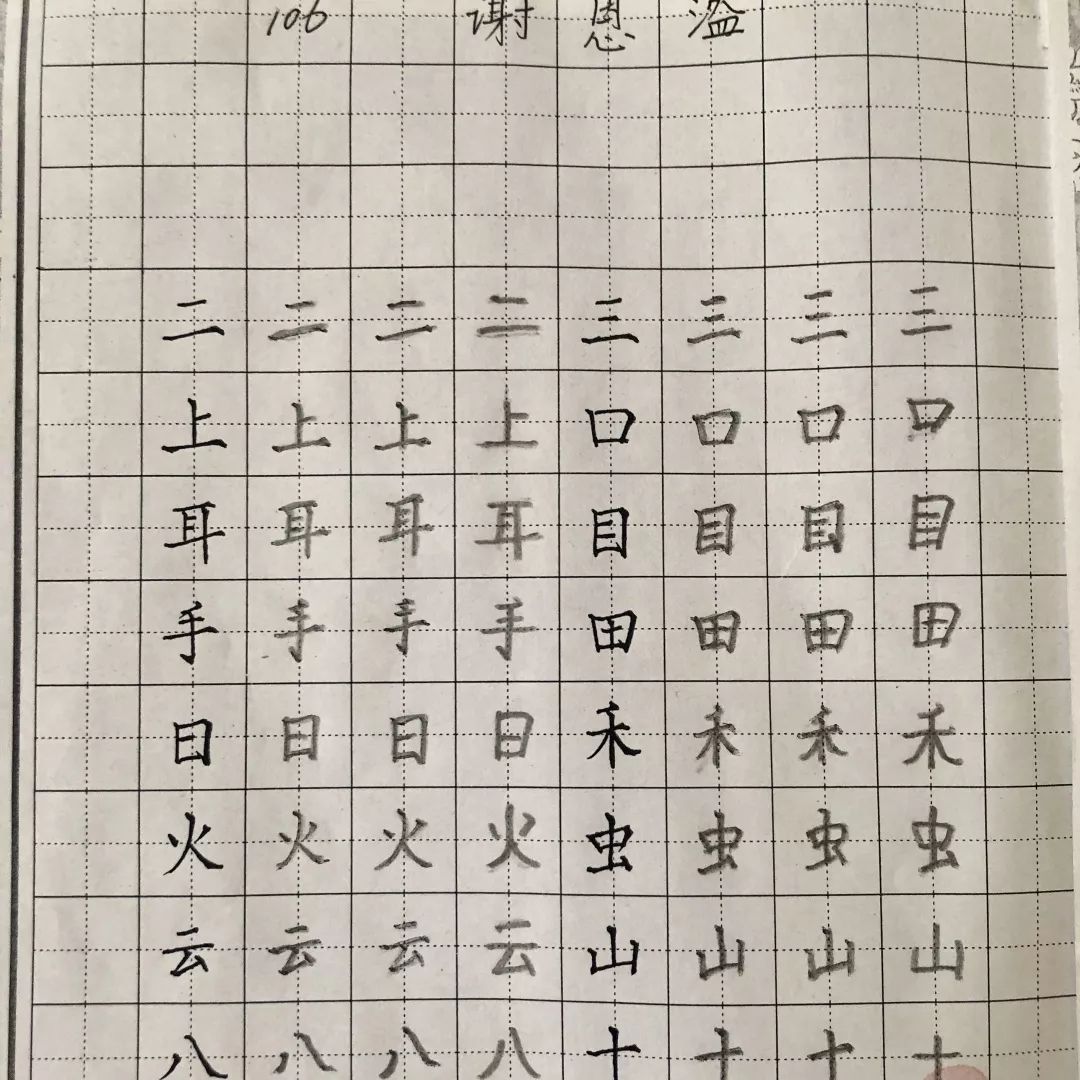 106 谢恩溢
二二二二三三三三
上上上上口口口口
耳耳耳耳目目目目
手手手手田田田田
日日日日禾禾禾禾
火火火火虫虫虫虫
云云云云山山山山
八八八八十十十十